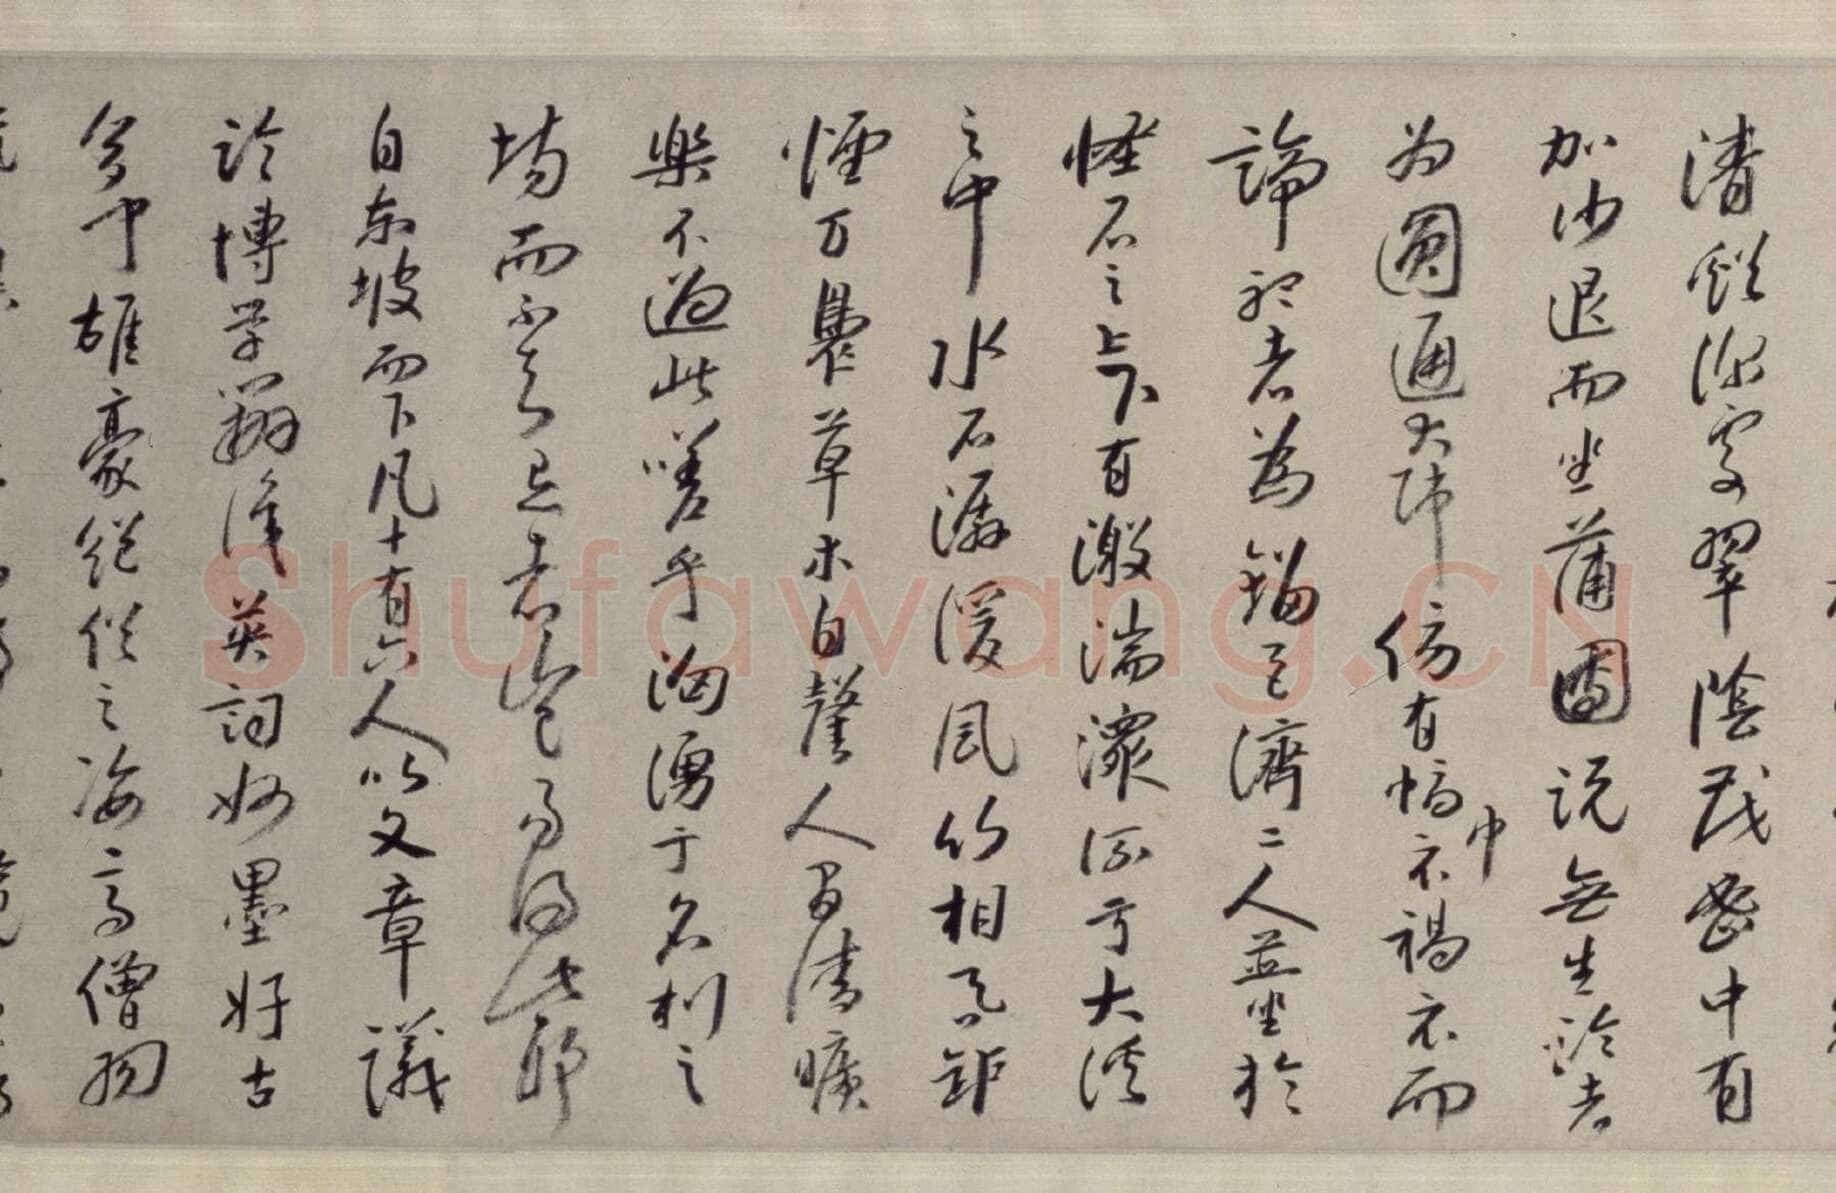 清谿深處翠陰茂密中有
加沙退而坐蒲團說無生論者
为圓通大師傍有幅巾衣褐衣而
諦聽者為鎦巨濟二人並坐於
怪石之上下有激湍潨流于大溪
之中水石潺湲風竹相吞爐
煙方裊草木自馨人間清曠
樂不過此嗟乎洶湧于名利之
場而不知者豈易得此耶
自東坡而下凡十有六人以文章議
論博學辨識英詞妙墨好古
多聞雄豪絕俗之姿高僧羽
Shufawang.CN